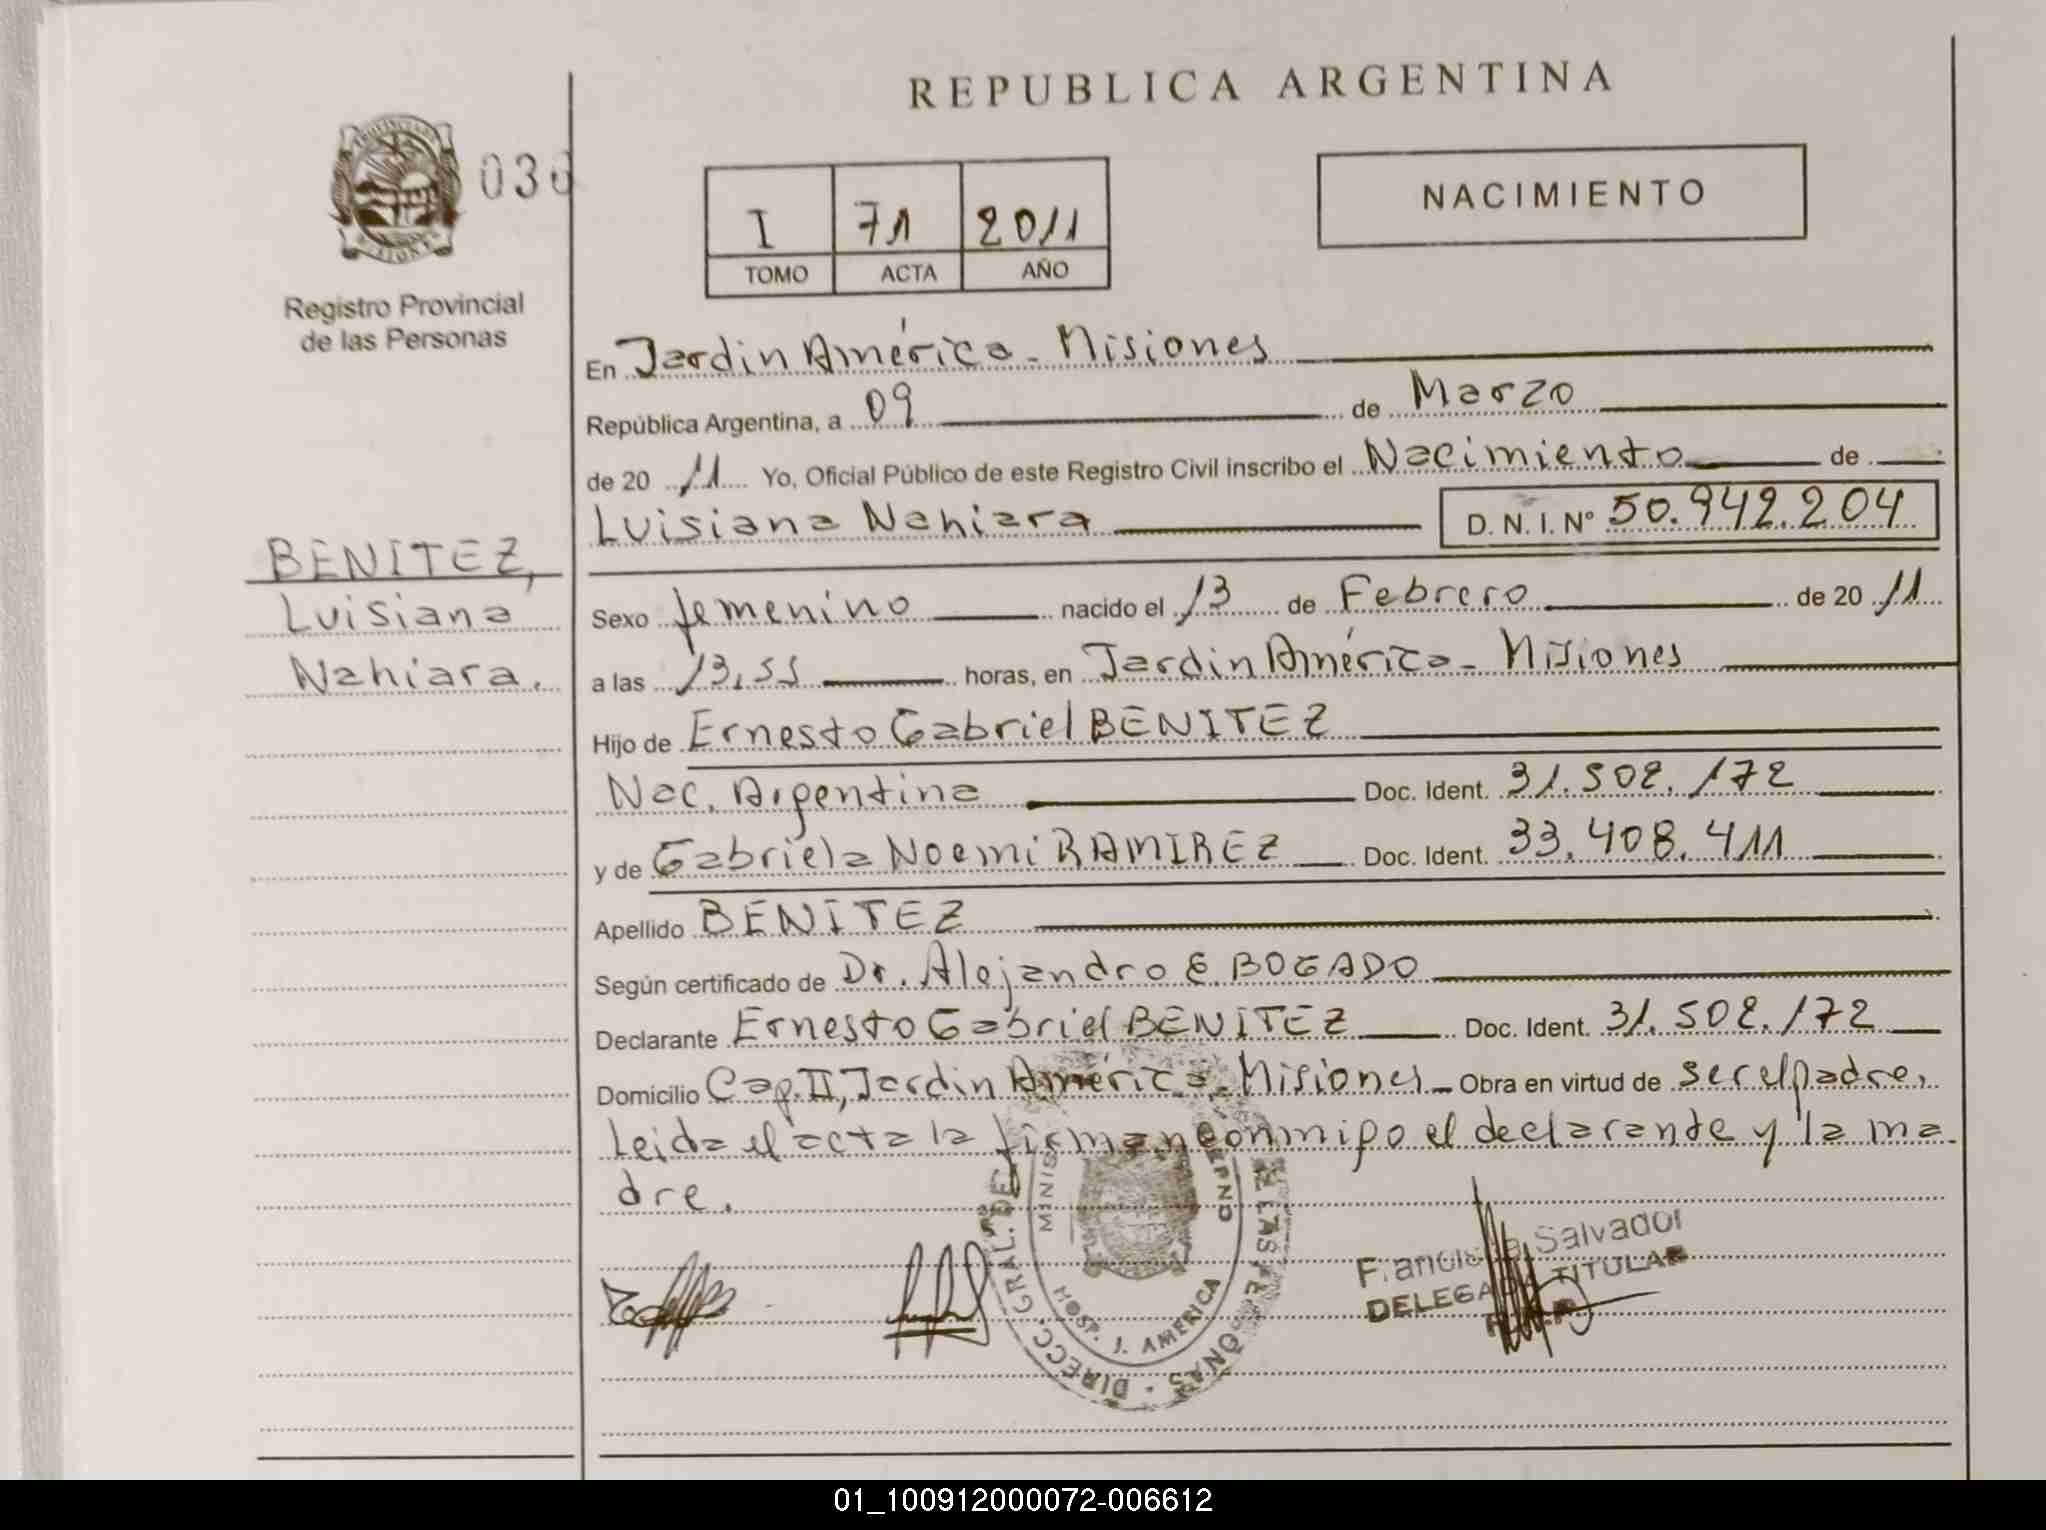 REPUBLICA ARGENTINA
036
NACIMIENTO
I 71 2011
TOMO ACTA AÑO
Registro Provincial
de las Personas
En Jardin América - Misiones
República Argentina, a 09 de Marzo
de 20 11 Yo, Oficial Público de este Registro Civil inscribo el Nacimiento de
Luisiana Nahiara D. N. I. Nº 50.942.204
BENITEZ,
Luisiana
Nahiara.
Sexo femenino nacido el 13 de Febrero de 20 11
a las 13,55 horas, en Jardin América - Misiones
Hijo de Ernesto Gabriel BENITEZ
Nac. Argentina Doc. Ident. 31.502.172
y de Gabriela Noemi RAMIREZ Doc. Ident. 33.408.411
Apellido BENITEZ
Según certificado de Dr. Alejandro E. BOGADO
Declarante Ernesto Gabriel BENITEZ Doc. Ident. 31.502.172
Domicilio Cap. II, Jardin América - Misiones - Obra en virtud de ser el padre,
Leida el acta la firman conmigo el declarante y la ma-
dre.
DIRECC. GRAL. DE LAS
HOSP. J. AMERICA
Salvador
DELEGADA TITULAR
01_100912000072-006612